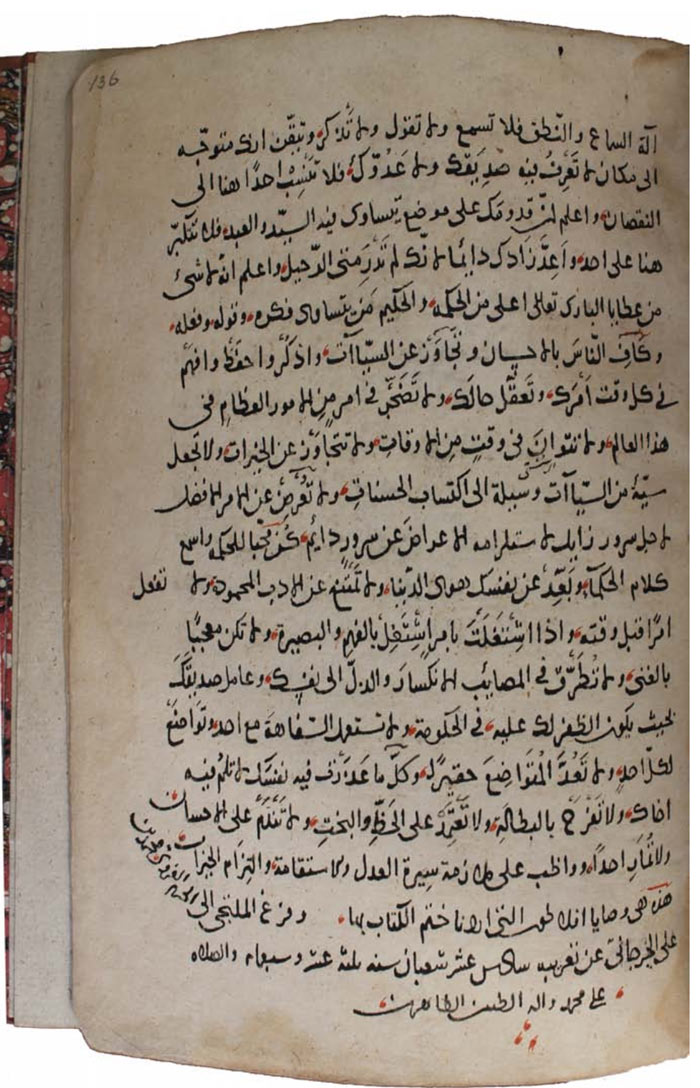 136
آلة السماع والنّطق فلا تسمع ولا تقول ولا تَذكر وتيقّن انك متوجّه
الى مكان لا تَعرِفُ فيه صَدِيقَك ولا عَدُوّك فلا تَنسِبْ احدًا هنا الى
النقصان واعلم انّ قدومك على موضع يتساوى فيه السيّد والعبد فلا تتكبّر
هنا على احد واَعِدَّ زادك دايمًا لانّك لم تَدْرِ متى الرّحيل واعلم انه لا شئ
من عطايا البارى تعالى اعلى من الحكمة والحكيم مَن يتساوى فكره وقوله وفعله
وكافِ النّاسَ بالاحسان وتجاوَزْ عن السيّاآت واذكُر واحفَظْ وافهَم
في كل وقت اَمرَك وتَعقَّل حالك ولا تَضجَر في امرٍ مِن الامور العظام في
هذا العالم ولا تتوانَ فى وقتٍ مِن الاوقات ولا تتجاوَز عن الخيرات ولا تجعل
سيّة من السيّاآت وسيلة الى اكتساب الحسنات ولا تُعرِض عن الامر الافضل
لاجل سرور زايل لاستلزامه الاعراض عن سرورٍ دايم كُن محبّا للحكمة واسمع
كلام الحكماء وبَعِّد عن نفسك هوى الدّنيا ولا تَمتَنِع عن الادب المحمود ولا تفعل
امرًا قبل وقته واذا اشتَغَلتَ بامرٍ اشتَغِل بالفهم والبصيرة ولا تكن معجبًا
بالغنى ولا تُطَرِّق في المصائب الانكسار والذلّ الى نفسك وعامل صديقَك
بحيث يكون الظفر لك عليه في الحكومة ولا تستعمل السّفاهة مع احد وتواضَعْ
لكلّ احدٍ ولا تَعُدَّ المُتواضِعَ حقيرًا وكلّ ما عَذَرتَ فيه نفسَك لا تلُم فيه
اخاك ولا تَفرَح بالبطالة ولا تَعتَمِد على الحَظّ والبخت ولا تَندَم على الاحسان
ولا تُمارِ احداً وواظب على ملازمة سِيرة العدل والاستقامة والتِزام الخيرات
هذه هى وصايا افلاطون التى اردنا ختم الكتاب بها وفرغ الملتجى الى
على الجرجانى عن تعريبه سادس عشر شعبان سنه ثلثه عشر وسبعماه والصلاه
على محمد واله الطيبين الطاهرين